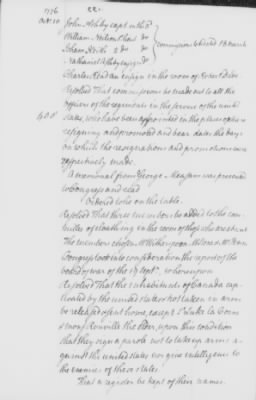 22.
1776
Oct. 10
John Ashby capt in the 3d
William Nelson
2 do
Nathaniel Ashby ensign do
commissions to be dated 18 March
Charles ensign in the room of
Resolved That commissions be made out to all the
officers of the regiments in the service of the united
states, who have been appointed in the places of others
resigning and promoted and bear date the day
on which the resignations and promotions were
respectively made.
A memorial from George Measam was presented
to Congress and read
Ordered to lie on the table.
Resolved That three members be added to the com-
mittee of cloathing in the room of those who are absent
The members chosen Mr Witherspoon
Congress took into consideration the report of the
board of war of the 17 Septr, whereupon
Resolved That the inhabitants of Canada cap-
tivated by the united states & not taken in arms
be released & sent home, except
Rouville the Elder, upon this condition
that they sign a parole not to take up arms a-
gainst the united states nor give intelligence to
the enemies of these states.
That a register be kept of their names